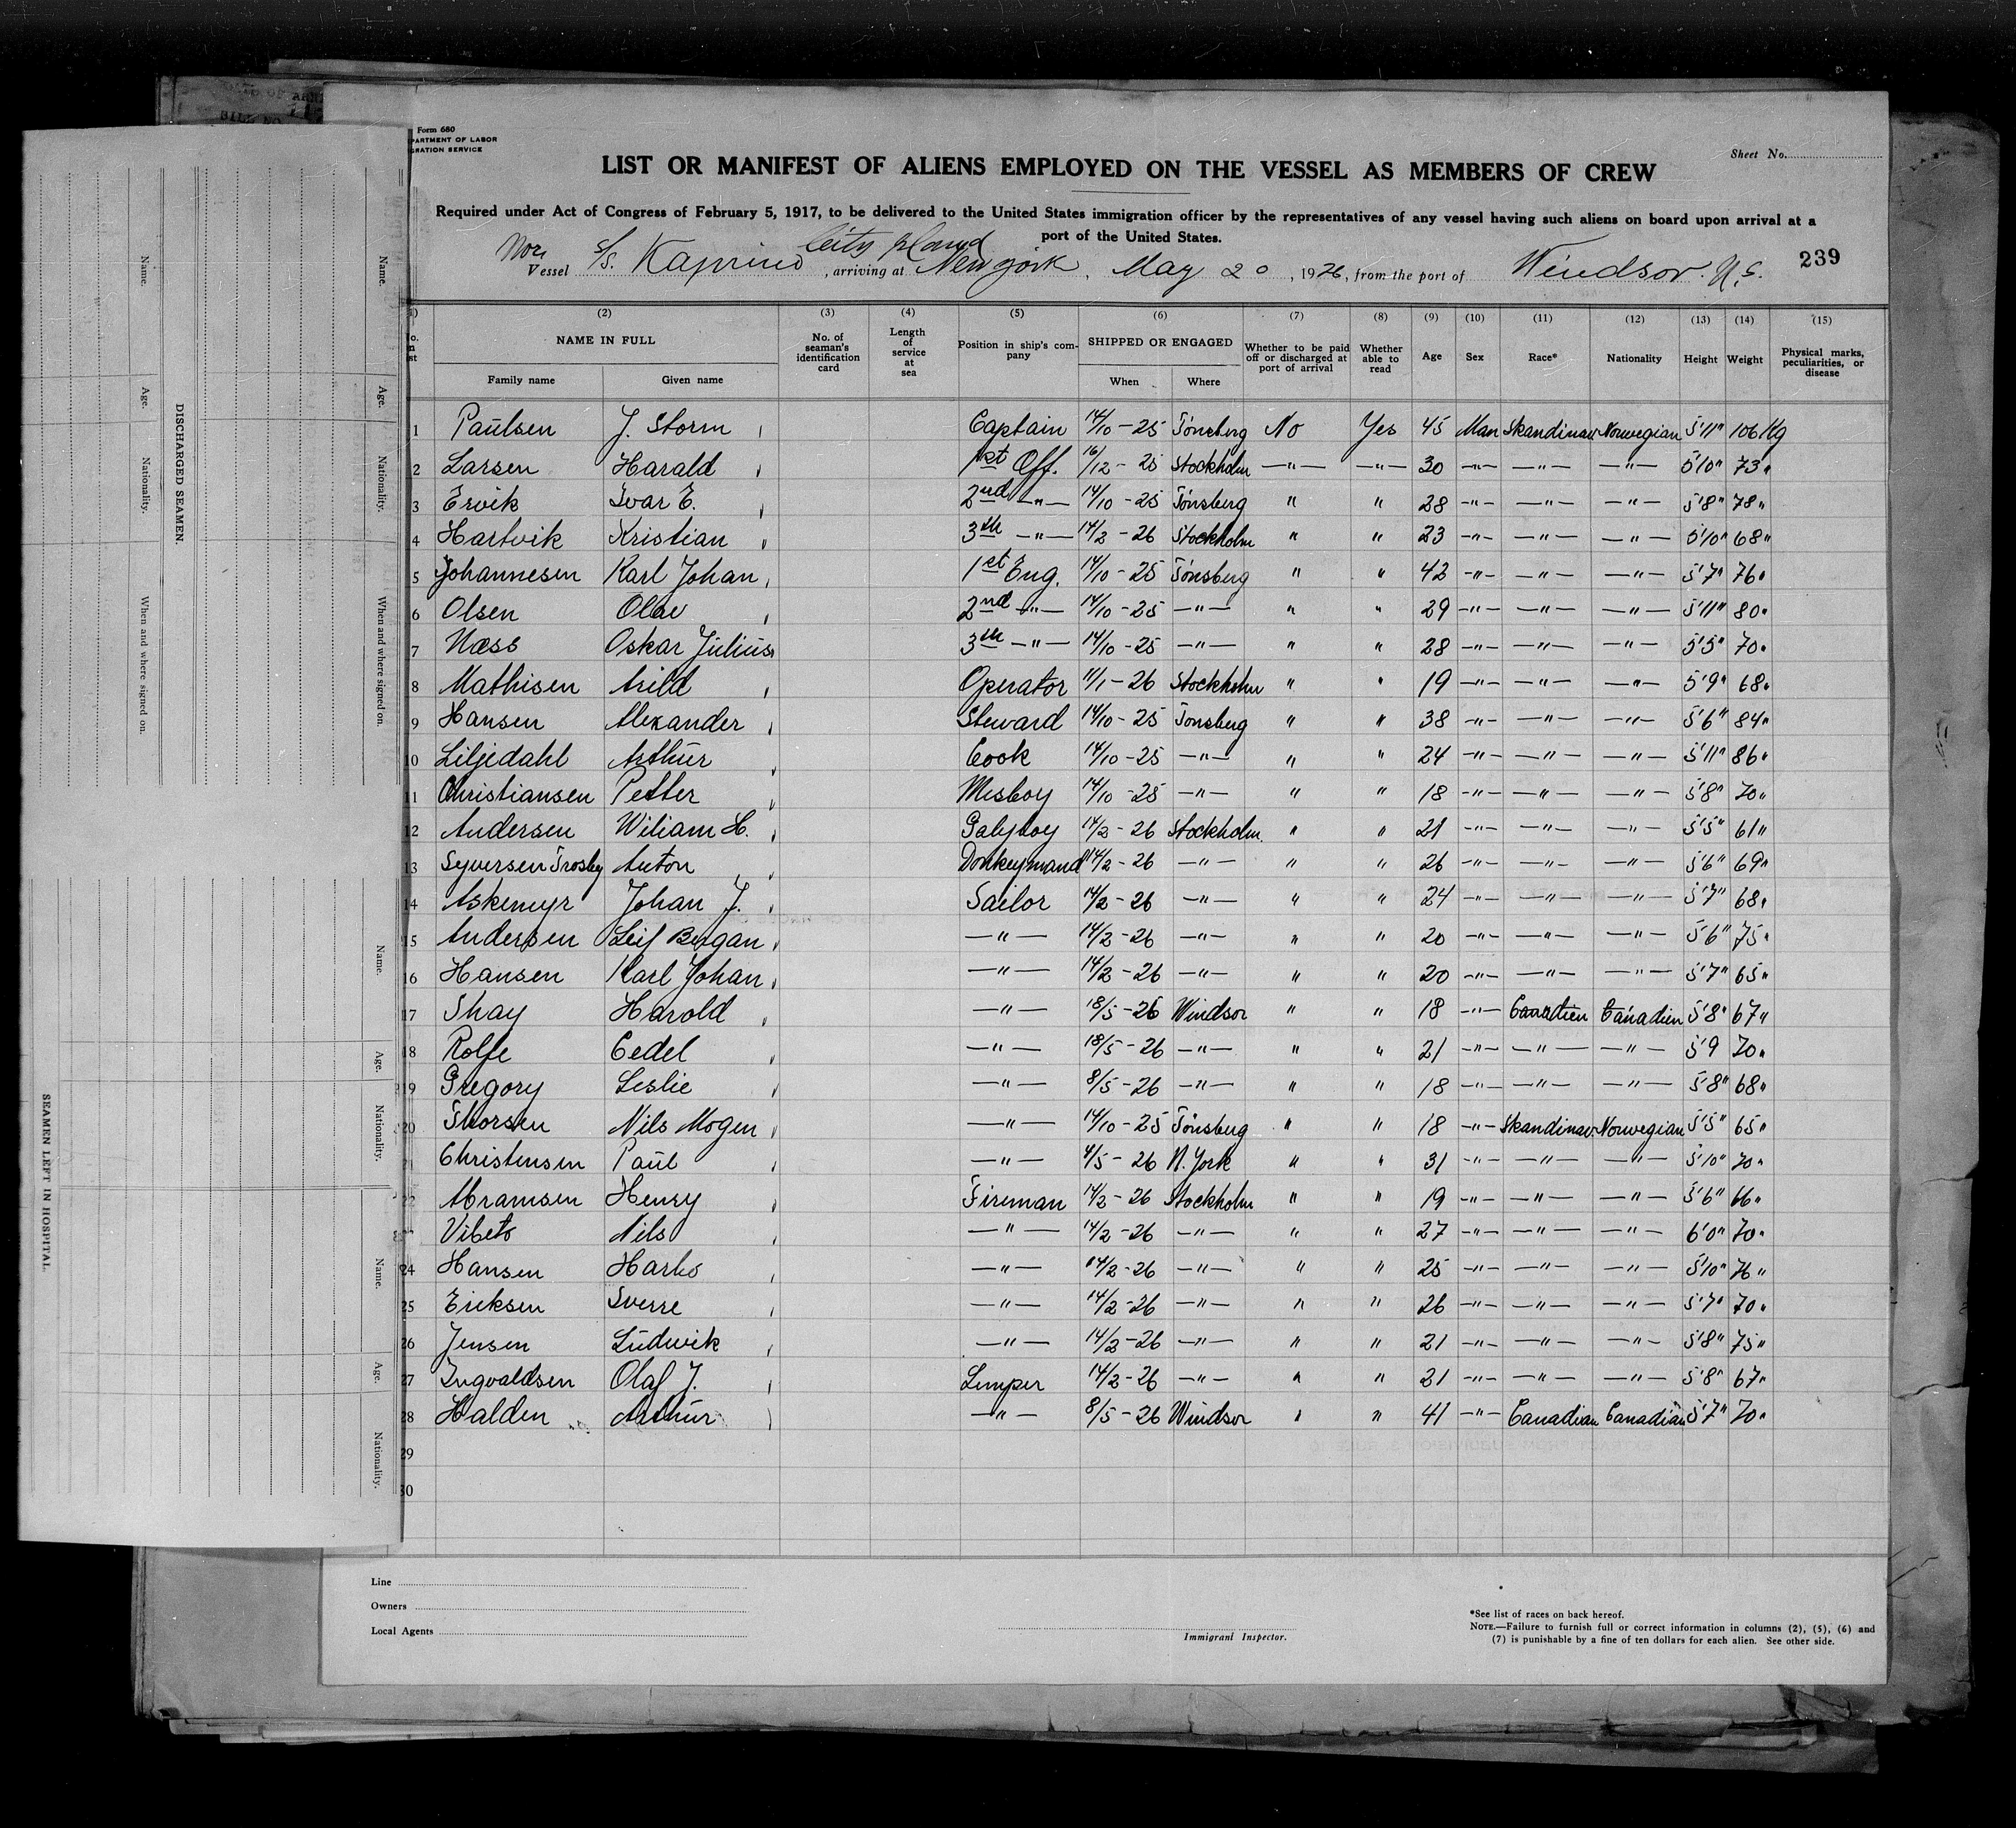 Form 680
PARTMENT OF LABOR
GRATION SERVICE
Sheet No.
LIST OR MANIFEST OF ALIENS EMPLOYED ON THE VESSEL AS MEMBERS OF CREW
Required under Act of Congress of February 5, 1917, to be delivered to the United States immigration officer by the representatives of any vessel having such aliens on board upon arrival at a
port of the United States.
Nor. Vessel s/s. Kaprino, arriving at New York, May 20, 1926, from the port of Windsor. N.S. 239
(2) (3) (4) (5) (6) (7) (8) (9) (10) (11) (12) (13) (14) (15)
NAME IN FULL No. of seaman's identification card Length of service at sea Position in ship's company SHIPPED OR ENGAGED Whether to be paid off or discharged at port of arrival Whether able to read Age Sex Race* Nationality Height Weight Physical marks, peculiarities, or disease
Family name Given name When Where
1 Paulsen J. Storm Captain 14/10-25 Tönsberg No Yes 45 Man Skandinav Norwegian 5'11" 106 Kg
2 Larsen Harald 1st Off. 16/12-25 Stockholm —"— —"— 30 —"— —"— —"— 5'10" 73"
3 Ervik Ivar E. 2nd —"— 14/10-25 Tönsberg " " 28 —"— —"— —"— 5'8" 78"
4 Hartvik Kristian 3th —"— 14/2-26 Stockholm " " 23 —"— —"— —"— 5'10" 68"
5 Johannesen Karl Johan 1st Eng. 14/10-25 Tönsberg " " 42 —"— —"— —"— 5'7" 76"
6 Olsen Olav 2nd —"— 14/10-25 —"— " " 29 —"— —"— —"— 5'11" 80"
7 Næss Oskar Julius 3th —"— 14/10-25 —"— " " 28 —"— —"— —"— 5'5" 70"
8 Mathisen Arild Operator 11/1-26 Stockholm " " 19 —"— —"— —"— 5'9" 68"
9 Hansen Alexander Steward 14/10-25 Tönsberg " " 38 —"— —"— —"— 5'6" 84"
10 Liljedahl Arthur Cook 14/10-25 —"— " " 24 —"— —"— —"— 5'11" 86"
11 Christiansen Petter Mesboy 14/10-25 —"— " " 18 —"— —"— —"— 5'8" 70"
12 Andersen Wiliam H. Galyboy 14/2-26 Stockholm. " " 21 —"— —"— —"— 5'5" 61"
13 Syversen Trosby Anton Donkeymand 14/2-26 —"— " " 26 —"— —"— —"— 5'6" 69"
14 Askemyr Johan J. Sailor 14/2-26 —"— " " 24 —"— —"— —"— 5'7" 68"
15 Andersen Leif Bergan —"— 14/2-26 —"— " " 20 —"— —"— —"— 5'6" 75"
16 Hansen Karl Johan —"— 14/2-26 —"— " " 20 —"— —"— —"— 5'7" 65"
17 Shay Harold —"— 18/5-26 Windsor " " 18 —"— Canadien Canadien 5'8" 67"
18 Rolfe Cedel —"— 18/5-26 —"— " " 21 —"— —"— —"— 5'9 70"
19 Gregory Leslie —"— 8/5-26 —"— " " 18 —"— —"— —"— 5'8" 68"
20 Thorsen Nils Mogen —"— 14/10-25 Tönsberg " " 18 —"— Skandinav. Norwegian 5'5" 65"
21 Christensen Paul —"— 4/5-26 N. York " " 31 —"— —"— —"— 5'10" 70"
22 Abramsen Henry Fireman 14/2-26 Stockholm " " 19 —"— —"— —"— 5'6" 66"
Vibeto Nils —"— 14/2-26 —"— " " 27 —"— —"— —"— 6'0" 70"
24 Hansen —"— 14/2-26 —"— " " 25 —"— —"— —"— 5'10" 76"
25 Ericksen Sverre —"— 14/2-26 —"— " " 26 —"— —"— —"— 5'7" 70"
26 Jensen Ludwik —"— 14/2-26 —"— " " 21 —"— —"— —"— 5'8" 75"
27 Ingvaldsen Olaf J. Lemper 14/2-26 —"— " " 21 —"— —"— —"— 5'8" 67"
28 Halden Arthur —"— 8/5-26 Windsor " " 41 —"— Canadian Canadian 5'7" 70"
29
30
Line
Owners
Local Agents
Immigrant Inspector.
*See list of races on back hereof.
NOTE.—Failure to furnish full or correct information in columns (2), (5), (6) and
(7) is punishable by a fine of ten dollars for each alien. See other side.
DISCHARGED SEAMEN.
Name. Age. Nationality. When and where signed on.
Name. Age. Nationality. When and where signed on.
SEAMEN LEFT IN HOSPITAL.
Name. Age. Nationality.
Name. Age. Nationality.